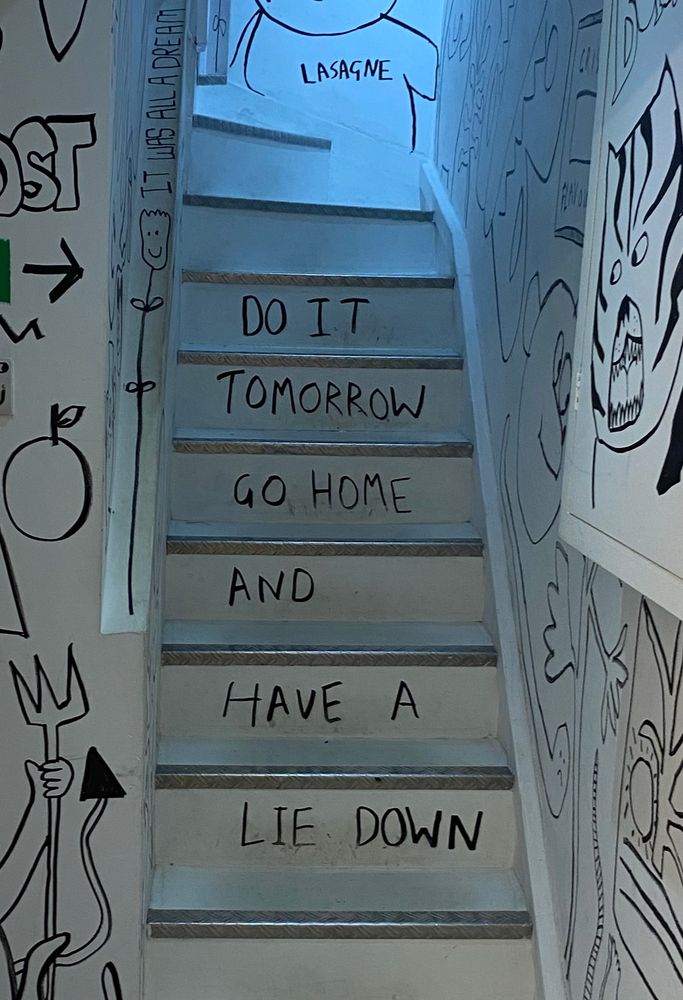 LASAGNE
IT WAS ALL A DREAM
OST
DO IT
TOMORROW
GO HOME
AND
HAVE A
LIE DOWN